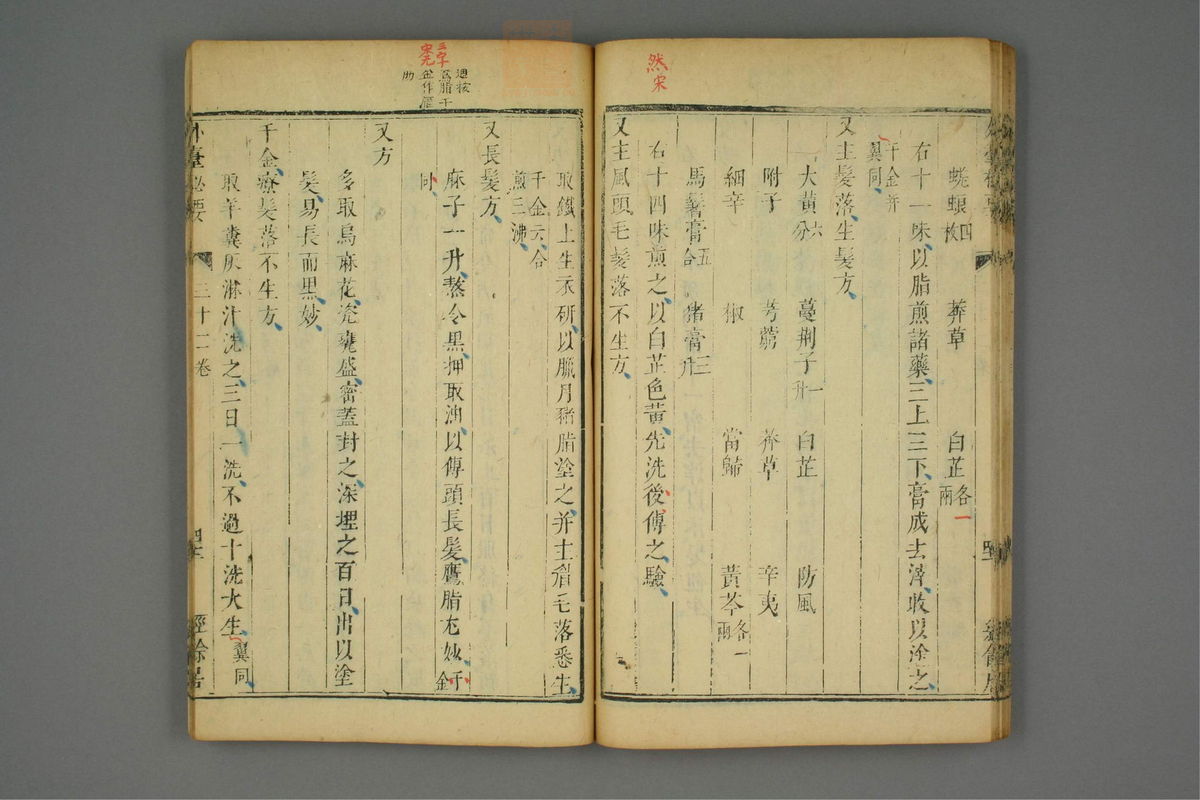 然宋
蜣蜋四枚 莽草 白芷各一兩
右十一味以脂煎諸藥三上三下膏成去滓收以塗之
千金并翼同
又主髮落生髮方
大黃六分 蔓荊子一升 白芷 防風
附子 芎藭 莽草 辛夷
細辛 椒 當歸 黃芩各一兩
馬鬐膏五合 猪膏三升
右十四味煎之以白芷色黃先洗後傅之驗
又主風頭毛髮落不生方
取鐵上生衣研以臘月猪脂塗之并主眉毛落悉生
千金云合煎三沸
又長髮方
麻子一升熬令黑押取油以傅頭長髮鴈脂尤妙千金
同
又方
多取烏麻花瓷甕盛密蓋封之深埋之百日出以塗
髮易長而黑妙
千金療髮落不生方
取羊糞灰淋汁洗之三日一洗不過十洗大生翼同
外臺秘要 三十二卷 經餘居